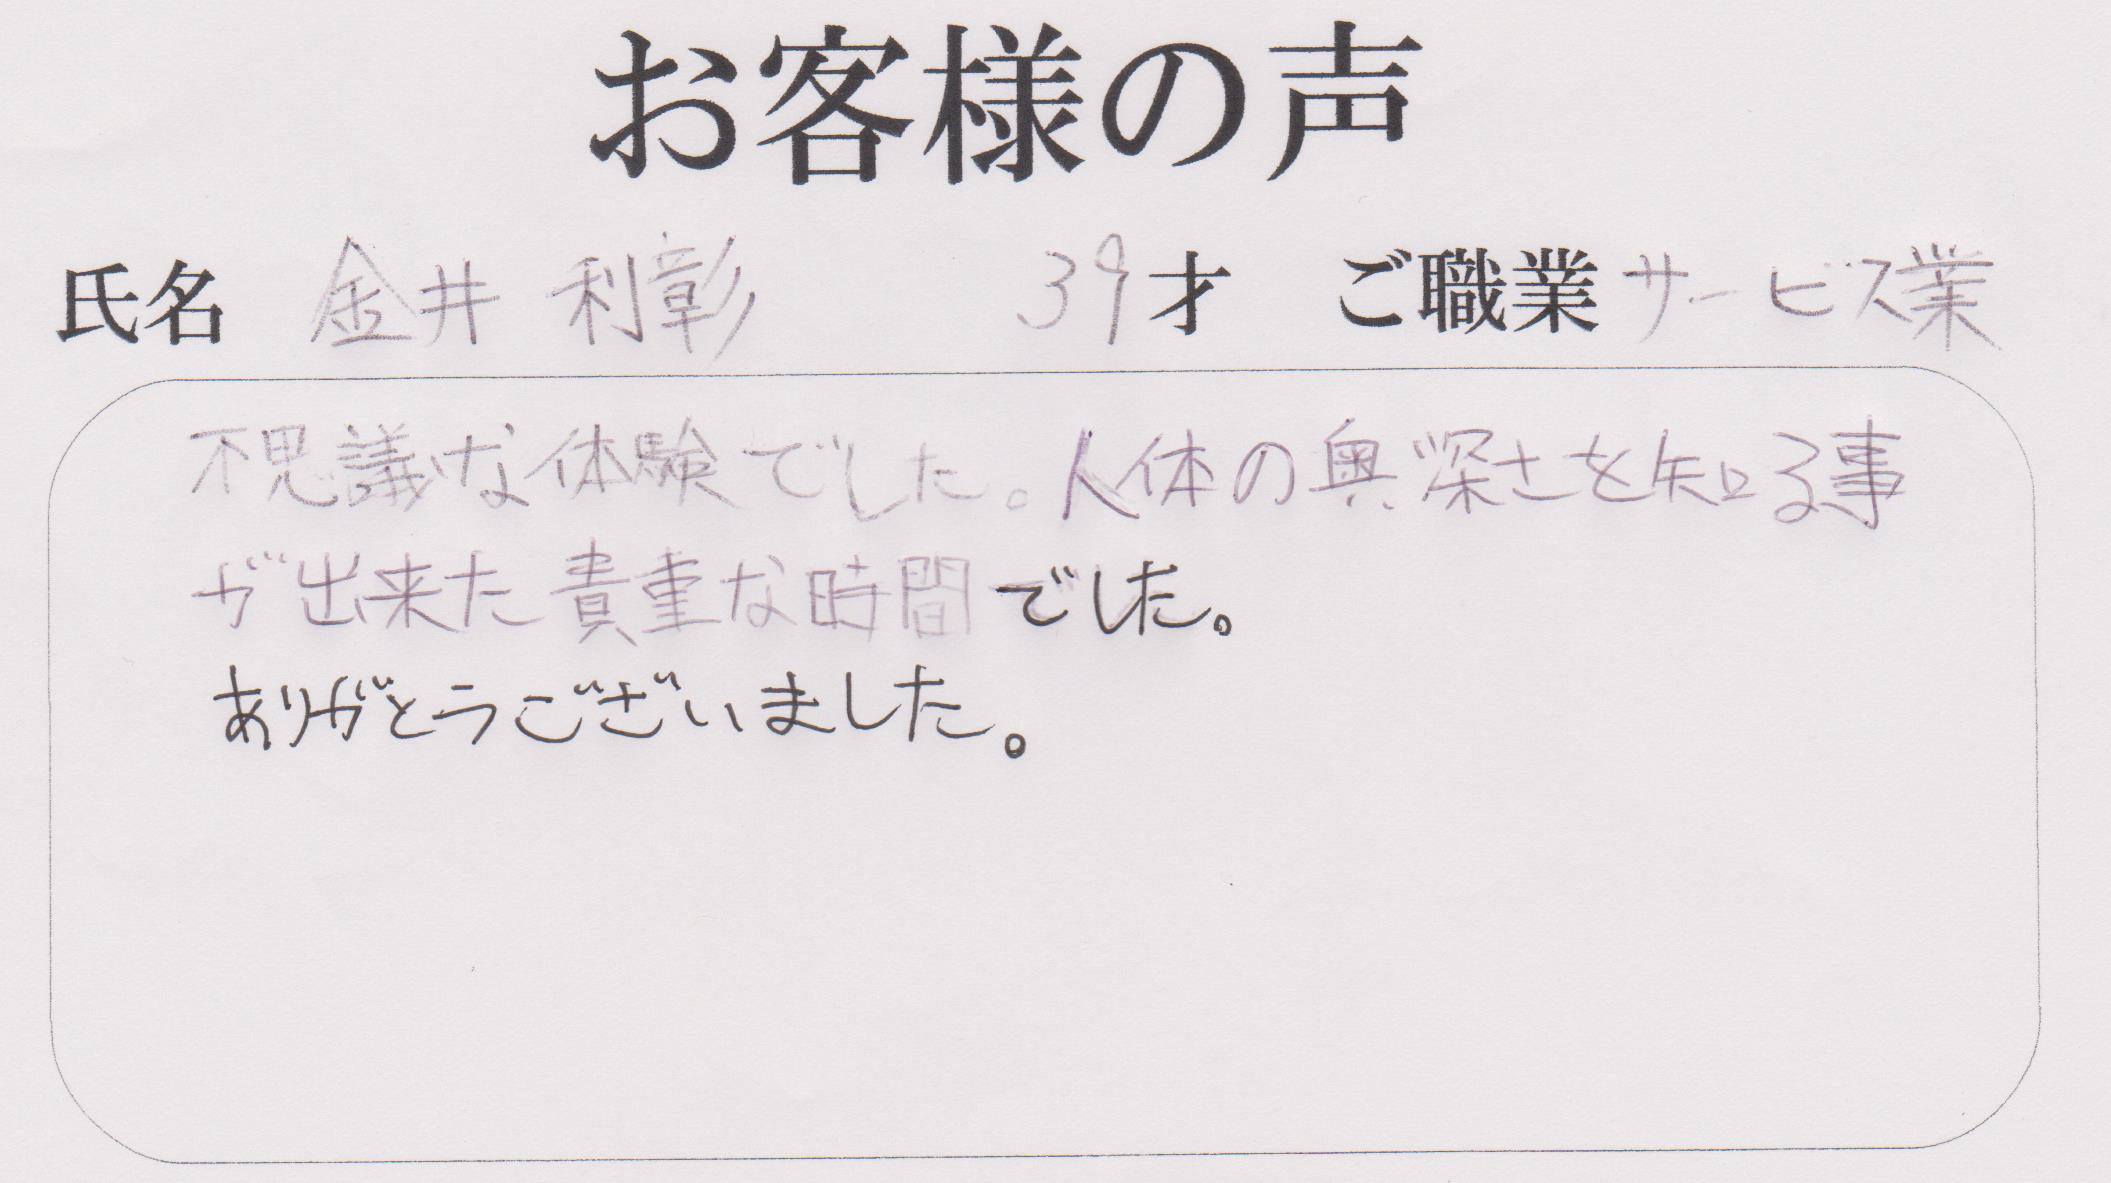 お客様の声
氏名 金井 利彰 39才 ご職業 サービス業
不思議な体験でした。人体の奥深さを知る事
が出来た貴重な時間でした。
ありがとうございました。